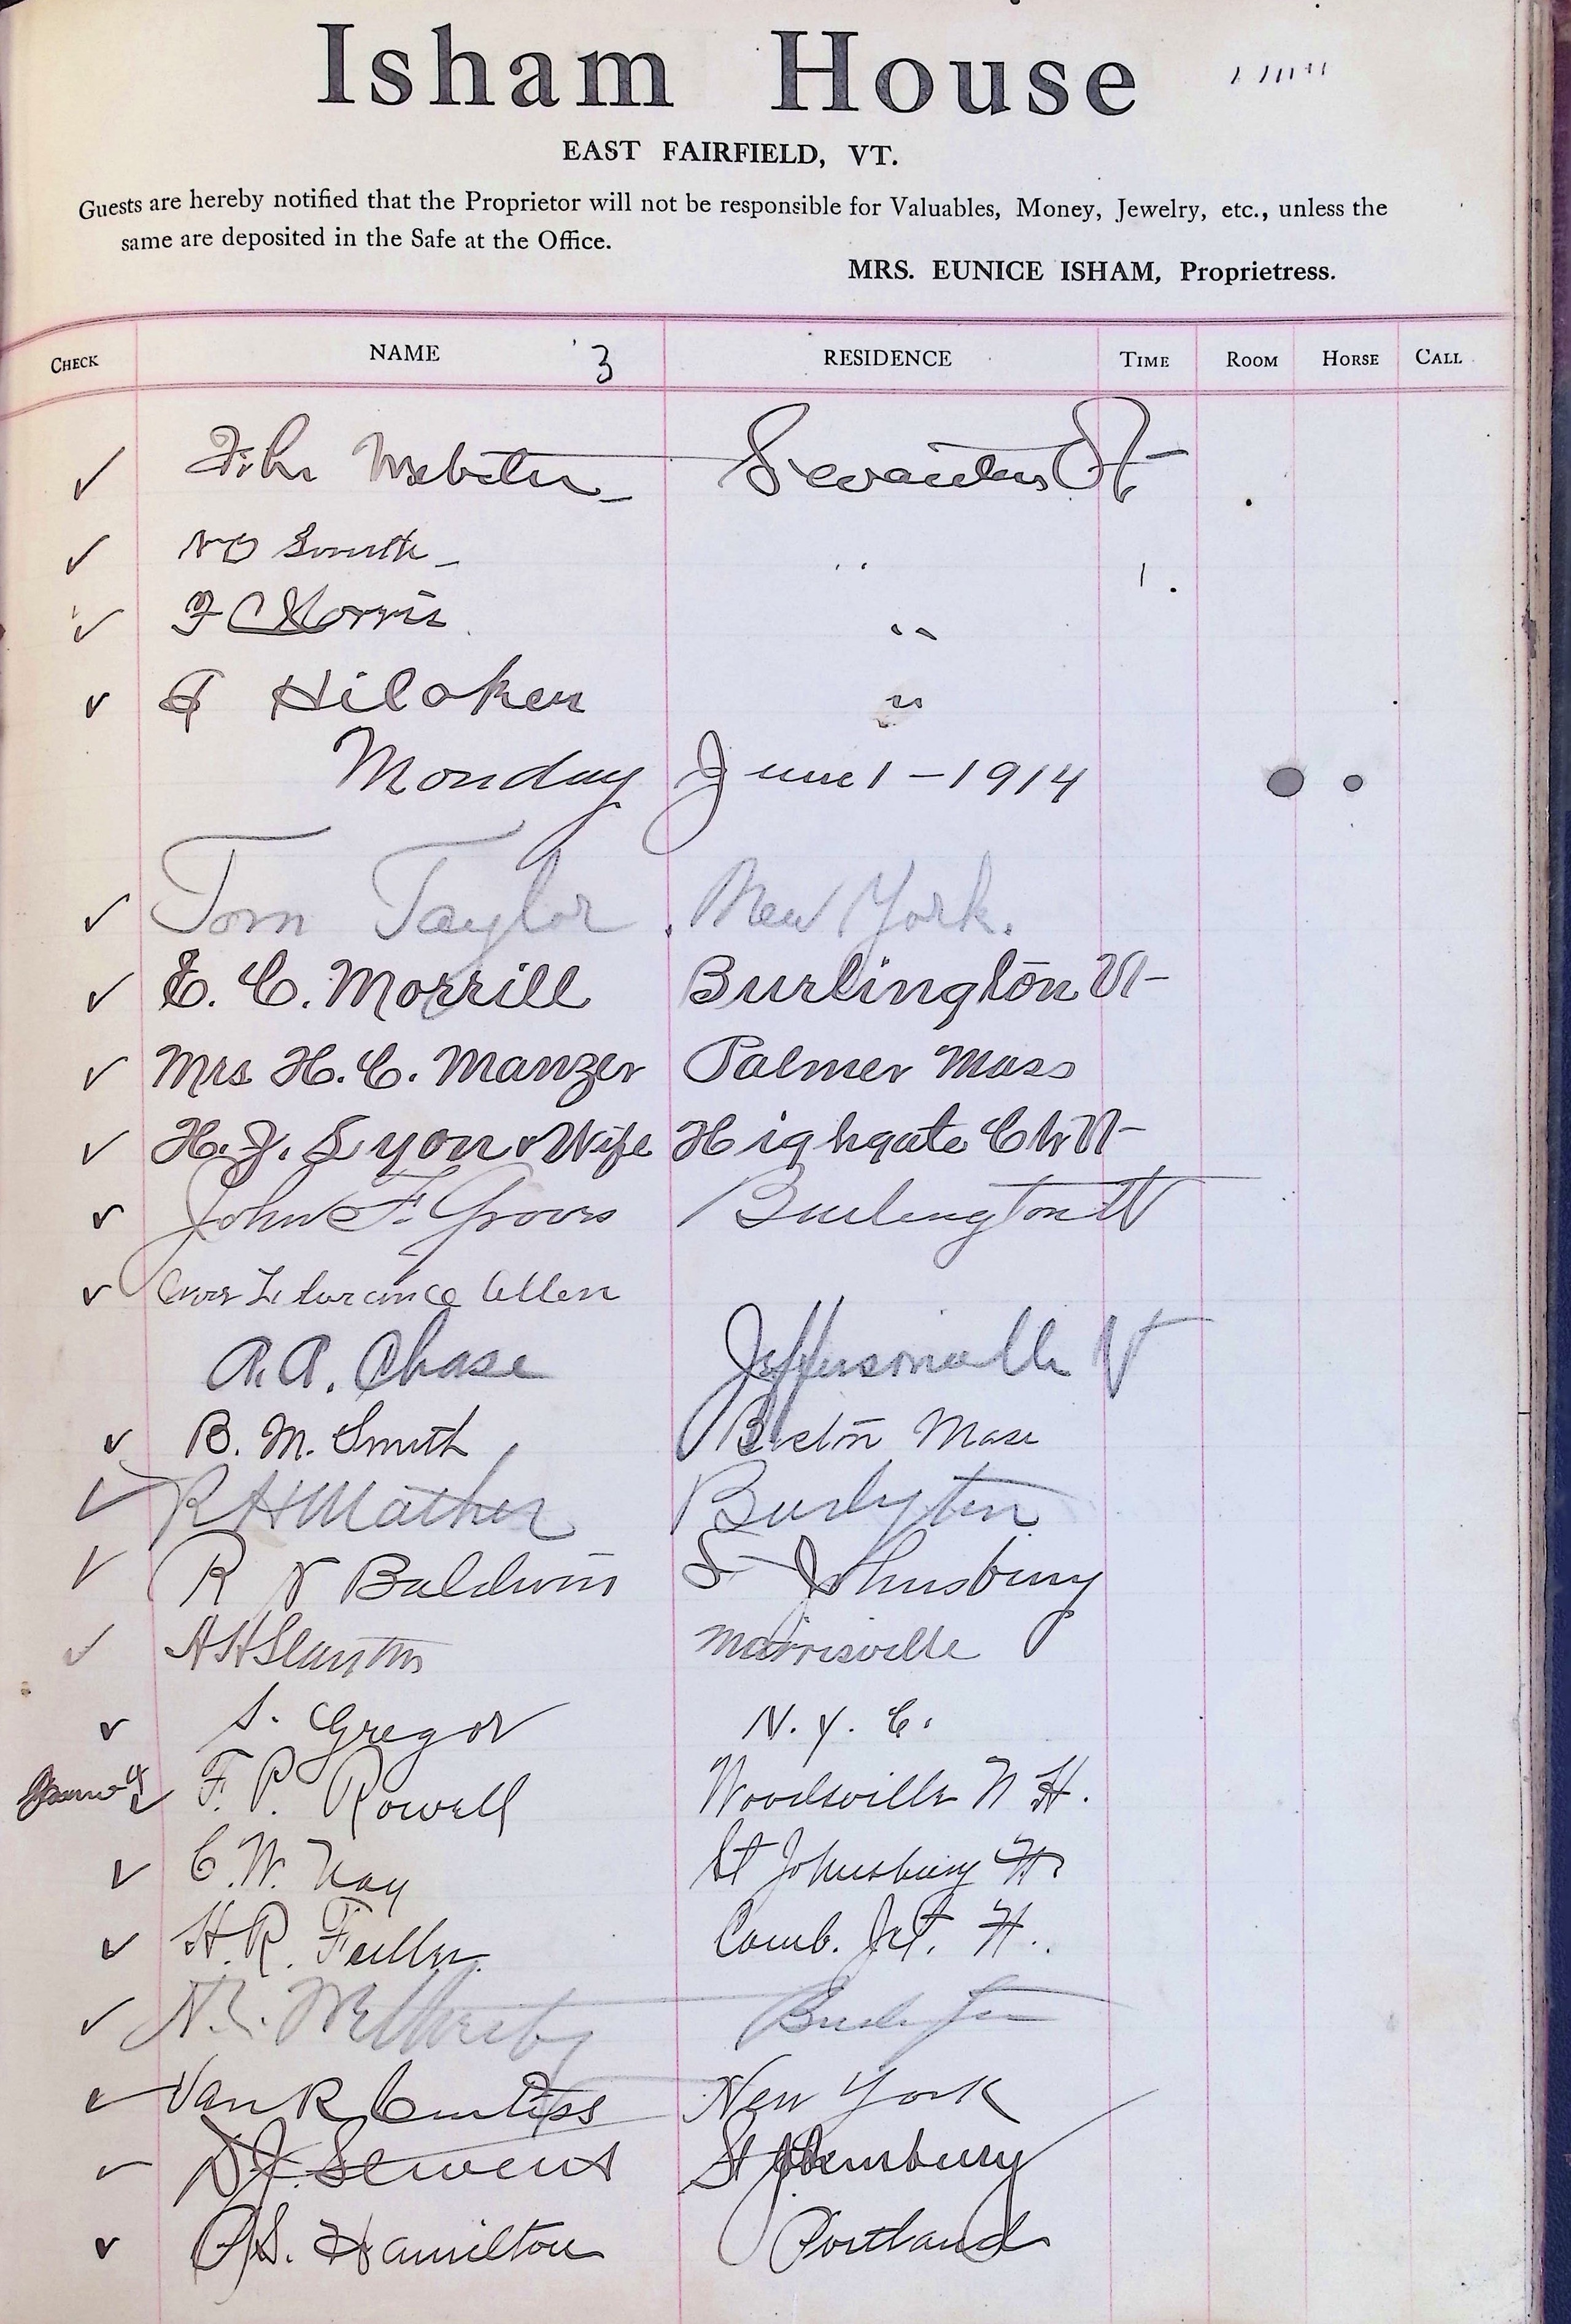 Isham House
EAST FAIRFIELD, VT.
Guests are hereby notified that the Proprietor will not be responsible for Valuables, Money, Jewelry, etc., unless the
same are deposited in the Safe at the Office.
MRS. EUNICE ISHAM, Proprietress.
CHECK NAME 3 RESIDENCE TIME ROOM HORSE CALL
✓ John Webster Swanton Vt
✓ Smith "
✓ F C Norris "
✓ Hilaken "
Monday June 1 - 1914
✓ Tom Taylor. New York.
✓ E. C. Morrill Burlington Vt
✓ Mrs H. C. Manzer Palmer Mass
✓ H. J. Lyon & Wife Highgate Ctr Vt
✓ John F. Burlington Vt
✓ Allen
A. A. Chase Jeffersonville Vt
✓ B. M. Smith Boston Mass
✓ R H Mather Burlington
✓ R N Baldwin St Johnsbury
✓ A H Slayton Morrisville
✓ S. Gregor N. Y. C.
✓ F. P. Rowell Woodsville N H.
✓ C. W. Nay St Johnsbury Vt
✓ H. R. Fuller Camb. Jct. Vt.
✓ Burlington
✓ Van R Curtiss New York
✓ D. J. Stevens St Johnsbury
✓ Hamilton Portland